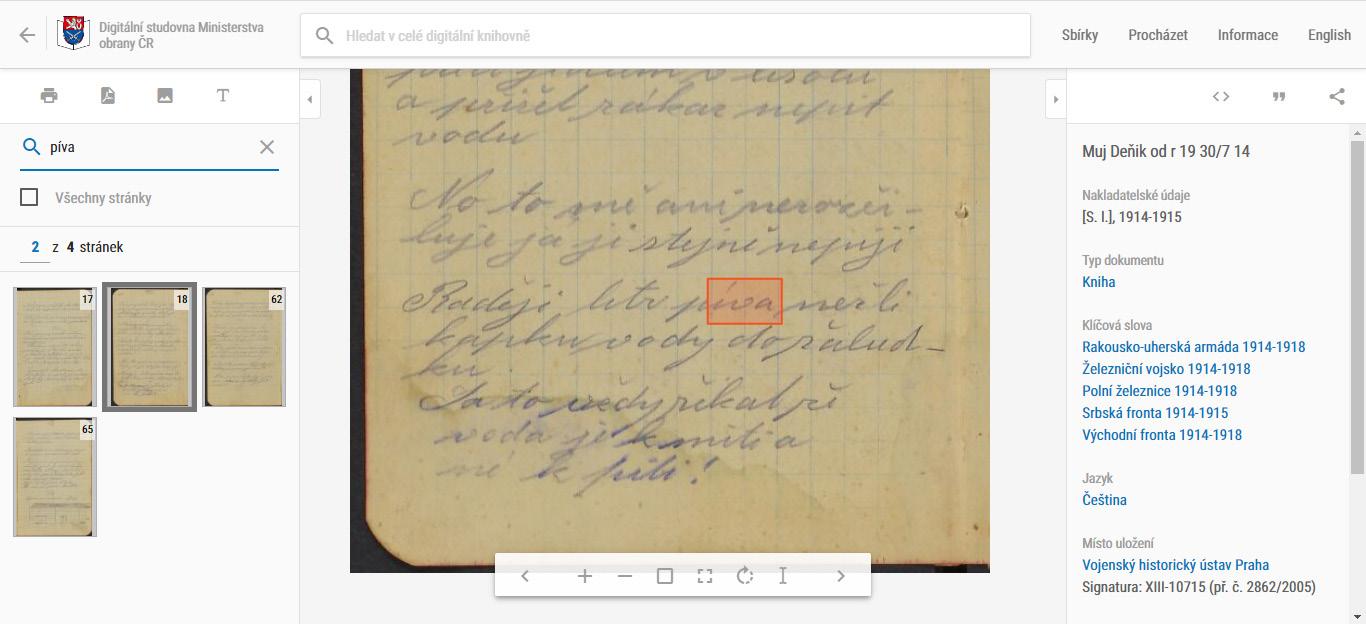 Digitální studovna Ministerstva
obrany ČR
Hledat v celé digitální knihovně
Sbírky
Procházet
Informace
English
píva
Všechny stránky
2 z 4 stránek
17
18
62
65
a přišel zákaz nepít
vodu
No to mě ani nerozči-
luje ja ji stejně nepiji
Raději litr píva nežli
kapku vody do žalud-
ku.
Ja to vždy říkal že
voda je k mití a
né k pití!
Muj Deňik od r 19 30/7 14
Nakladatelské údaje
[S. l.], 1914-1915
Typ dokumentu
Kniha
Klíčová slova
Rakousko-uherská armáda 1914-1918
Železniční vojsko 1914-1918
Polní železnice 1914-1918
Srbská fronta 1914-1915
Východní fronta 1914-1918
Jazyk
Čeština
Místo uložení
Vojenský historický ústav Praha
Signatura: XIII-10715 (př. č. 2862/2005)